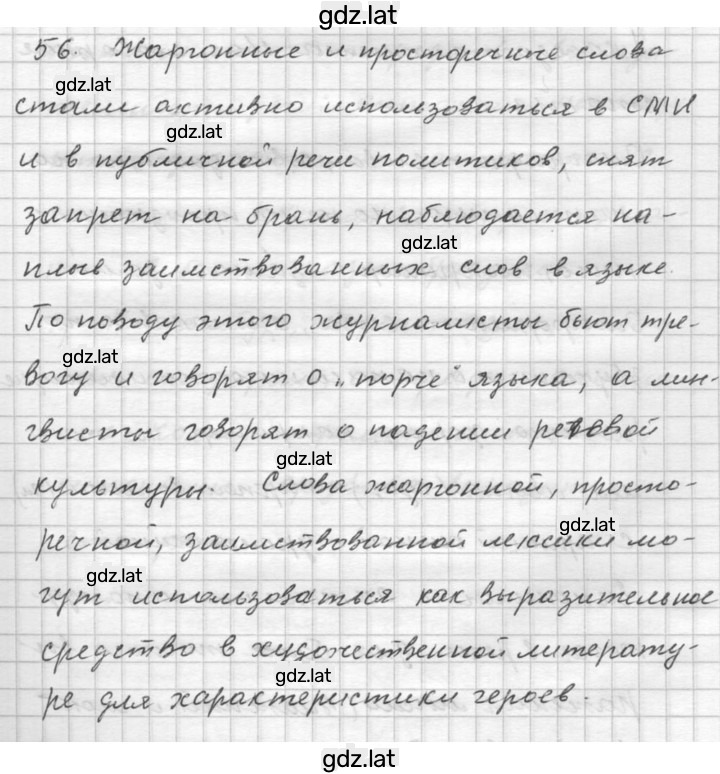 gdz.lat
56. Жаргонные и просторечные слова
gdz.lat
стали активно использоваться в СМИ
gdz.lat
и в публичной речи политиков, снят
запрет на брань, наблюдается на-
gdz.lat
плыв заимствованных слов в языке.
По поводу этого журналисты бьют тре-
gdz.lat
вогу и говорят о „порче" языка, а лин-
гвисты говорят о падении речевой
gdz.lat
культуры. Слова жаргонной, просто-
gdz.lat
речной, заимствованной лексики мо-
gdz.lat
гут использоваться как выразительное
средство в художественной литерату-
gdz.lat
ре для характеристики героев.
gdz.lat